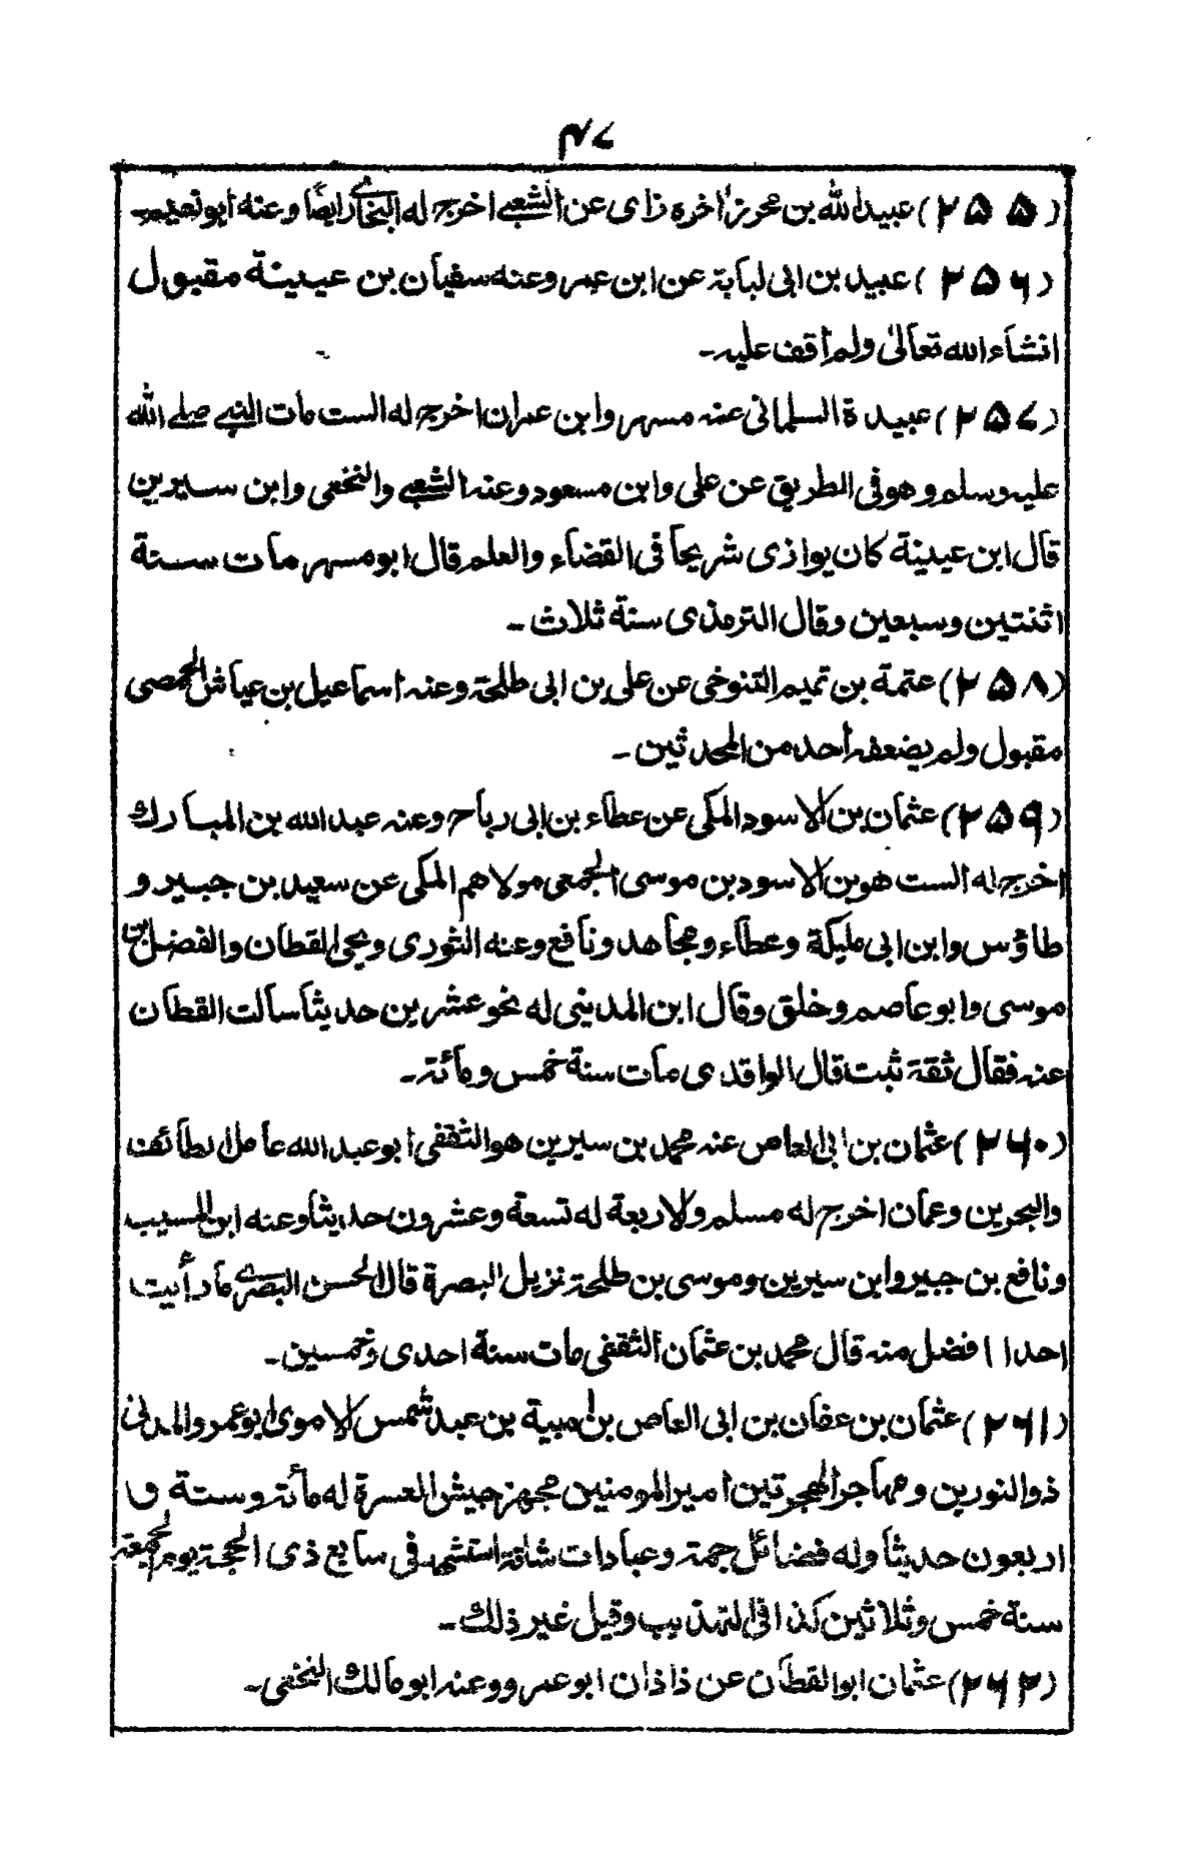 ۴۷
(۲۵۵) عبيد الله بن محرز أخره زاى عن الشعبي اخرج له البخاري ايضًا وعنه أبو نعيم۔
(۲۵۶) عبيد بن ابى لبابة عن ابن عمر وعنه سفيان بن عيينة مقبول
انشاء الله تعالىٰ ولم أقف عليه۔
(۲۵۷) عبيدة السلمانى عنه مسهر وابن عمران اخرج له الست مات النبي صلے الله
عليه وسلم وهو فى الطريق عن على وابن مسعود وعنه الشعبي والنخعى وابن سيرين
قال ابن عيينة كان يوازى شريحا فى القضاء والعلم قال ابو مسهر مات سنة
اثنتين وسبعين وقال الترمذى سنة ثلاث۔
(۲۵۸) عتمة بن تميم التنوخى عن على بن ابى طلحة وعنه اسماعيل بن عياش الحمصى
مقبول ولم يضعفه أحد من المحدثين۔
(۲۵۹) عثمان بن الاسود المكى عن عطاء بن ابى رباح وعنه عبد الله بن المبارك
اخرج له الست هو بن الاسود بن موسى الجمحى مولاهم المكى عن سعيد بن جبير و
طاؤس وابن ابى مليكة وعطاء ومجاهد ونافع وعنه الثورى ويحى القطان والفضل بن
موسى وابو عاصم وخلق وقال ابن المدينى له نحو عشرين حديثا سالت القطان
عنه فقال ثقة ثبت قال الواقدى مات سنة خمس ومائة۔
(۲۶۰) عثمان بن ابى العاص عنه محمد بن سيرين هو الثقفى أبو عبد الله عامل الطائف
والبحرين وعمان اخرج له مسلم والاربعة له تسعة وعشرون حديثا وعنه ابن المسيب
ونافع بن جبير وابن سيرين وموسى بن طلحة نزيل البصرة قال الحسن البصري ما رأيت
احدا افضل منه قال محمد بن عثمان الثقفى مات سنة احدى وخمسين۔
(۲۶۱) عثمان بن عفان بن ابى العاص بن أمية بن عبد شمس الاموى ابو عمرو المدنى
ذو النورين ومهاجر الهجرتين امير المومنين مجهز جيش العسرة له مأئة وستة و
اربعون حديثا وله فضائل جمة وعبادات شاقة استشهد فى سابع ذى الحجة يوم الجمعة
سنة خمس وثلاثين كذا فى التهذيب وقيل غير ذلك۔
(۲۶۲) عثمان ابو القطان عن ذاذان ابو عمرو وعنه ابو مالك النخفى۔